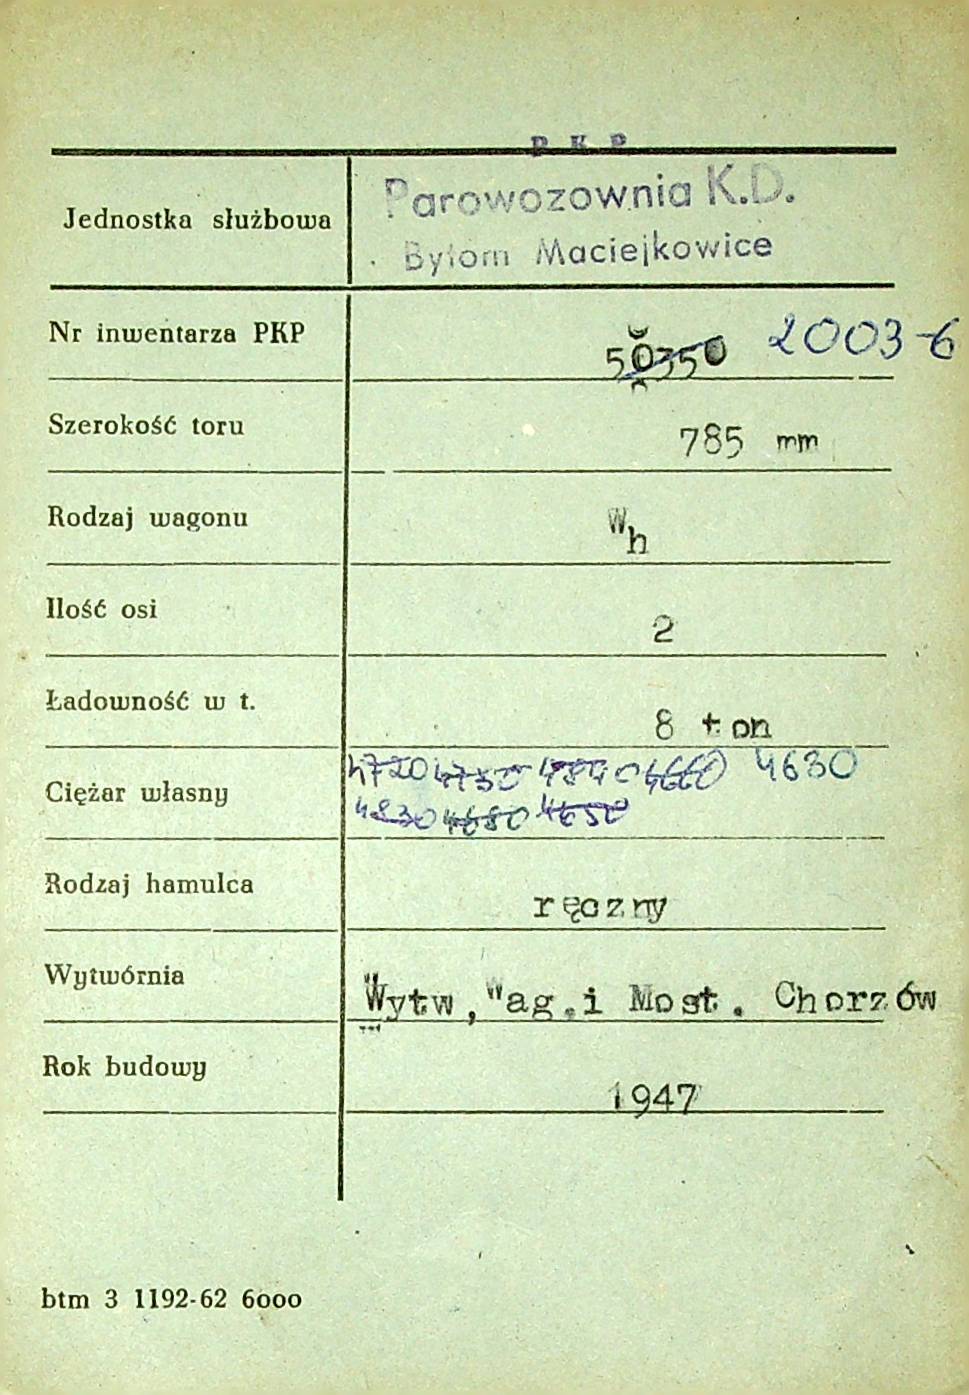 P K P
Jednostka służbowa Parowozownia K.D.
Bytom Maciejkowice
Nr inwentarza PKP 50350 2003-6
Szerokość toru 785 mm
Rodzaj wagonu Wh
Ilość osi 2
Ładowność w t. 8 ton
Ciężar własny 4720 4730 4660 4630
4830 4680 4650
Rodzaj hamulca ręczny
Wytwórnia Wytw,Wag.i Most. Chorzów
Rok budowy 1947
btm 3 1192-62 6000